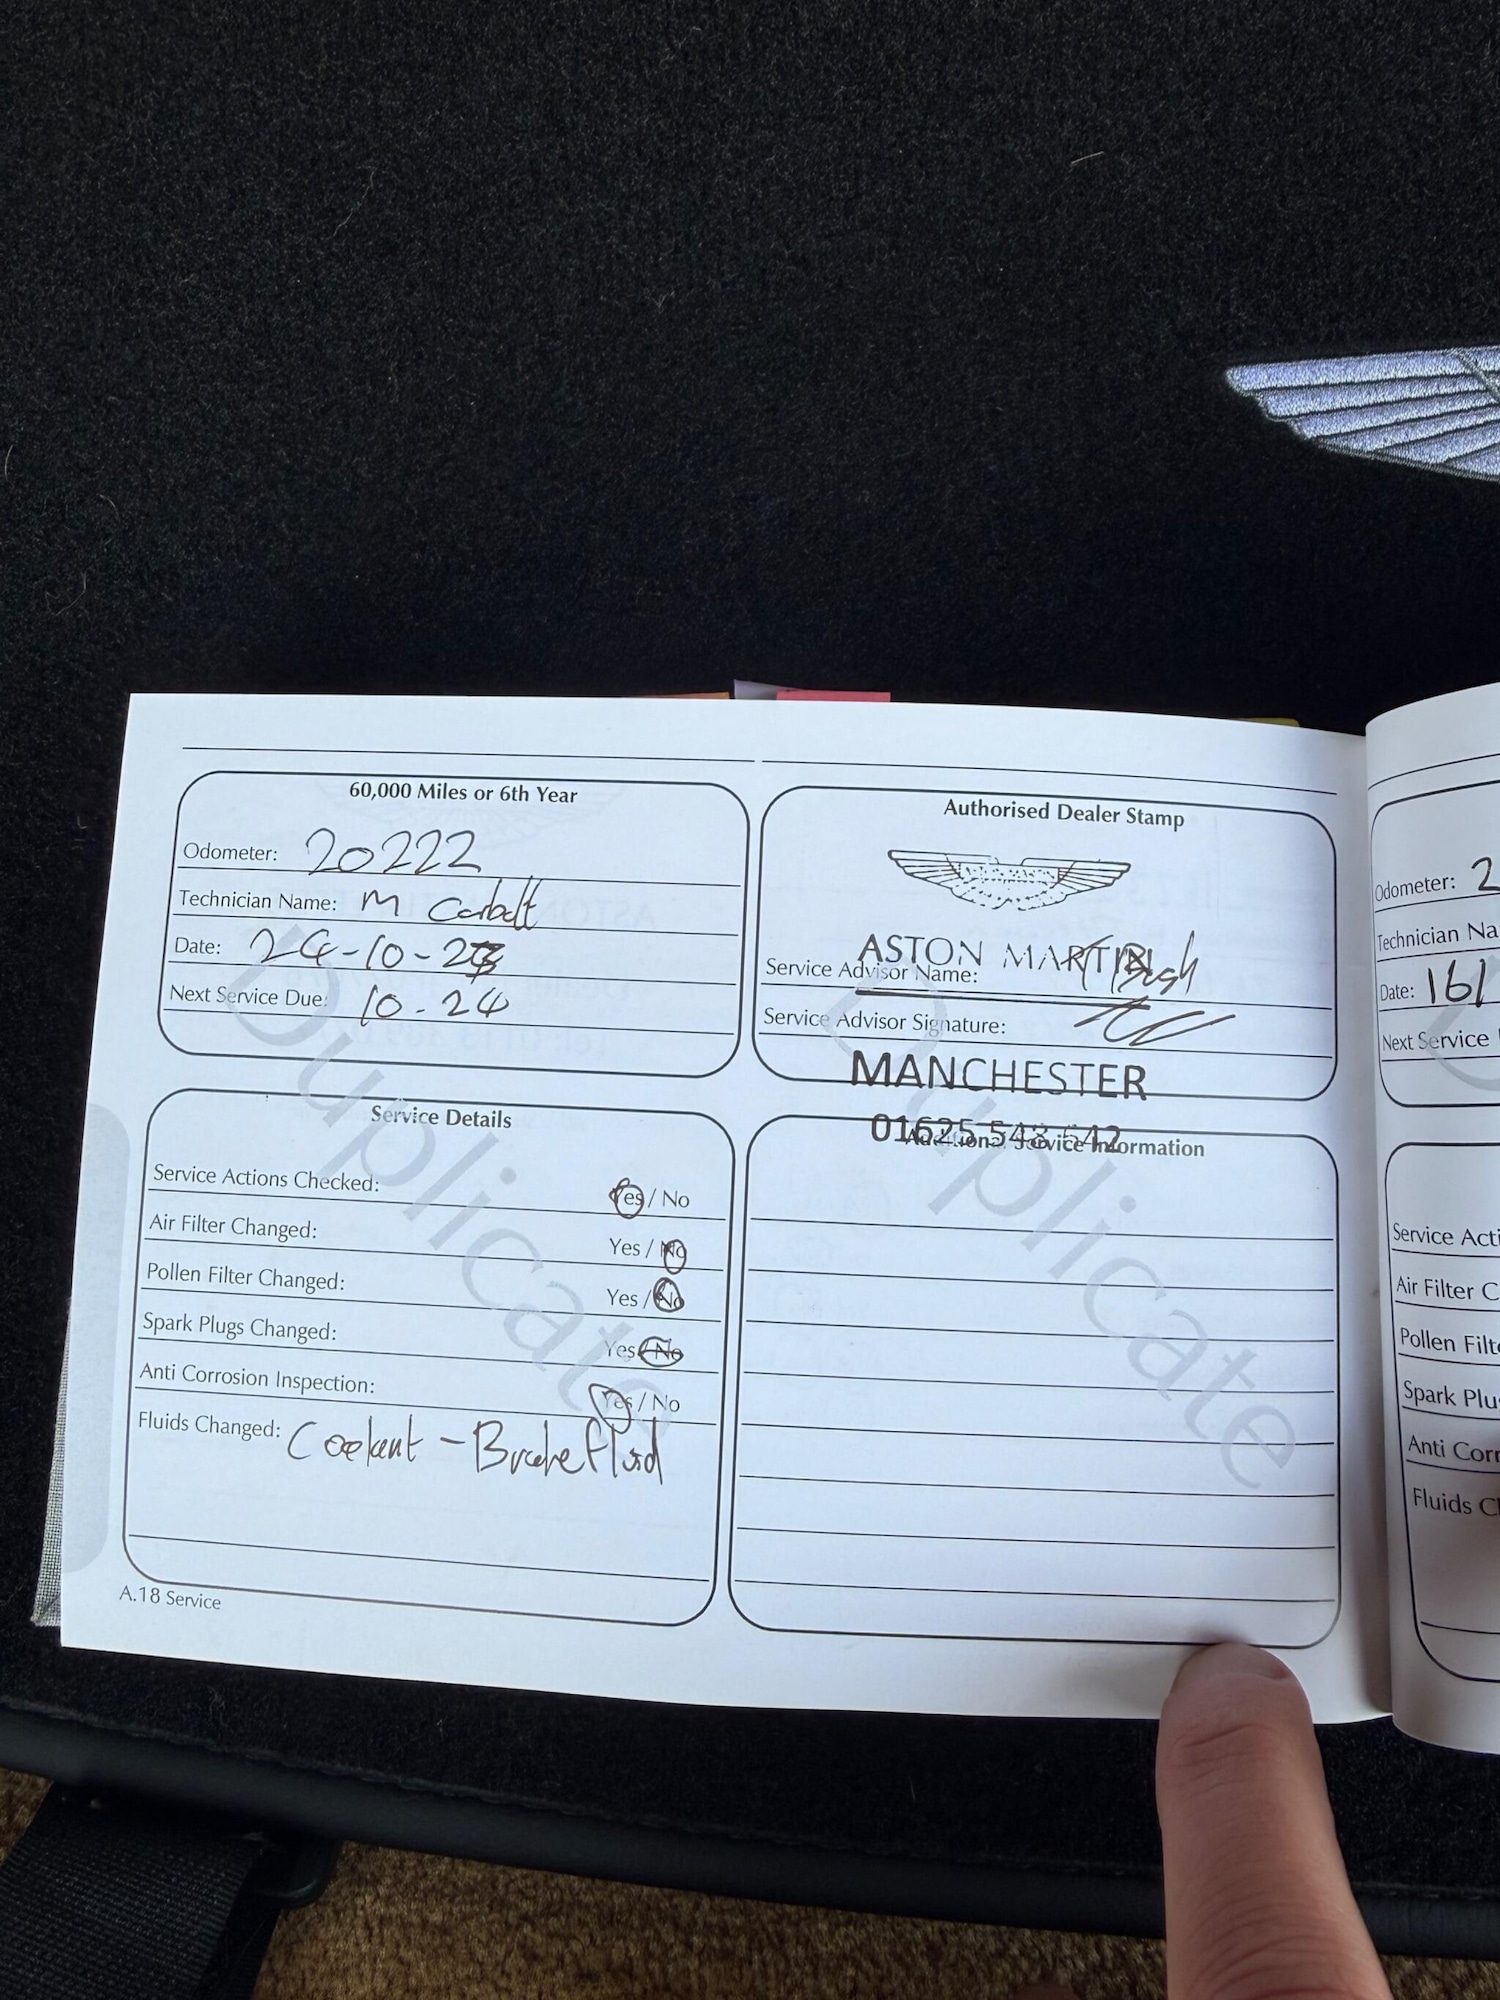 60,000 Miles or 6th Year
Odometer: 20222
Technician Name: M
Date: 24-10-23
Next Service Due: 10-24
Authorised Dealer Stamp
ASTON MARTIN
Service Advisor Name:
Service Advisor Signature:
MANCHESTER
01625 543 542
Service Details
Service Actions Checked: Yes / No
Air Filter Changed: Yes / No
Pollen Filter Changed: Yes / No
Spark Plugs Changed: Yes / No
Anti Corrosion Inspection: Yes / No
Fluids Changed: Coolant - Brake fluid
Additional Service Information
A.18 Service
Duplicate
Duplicate
Odometer: 2
Technician Na
Date: 16/
Next Service
Service Acti
Air Filter C
Pollen Filte
Spark Plu
Anti Corr
Fluids C